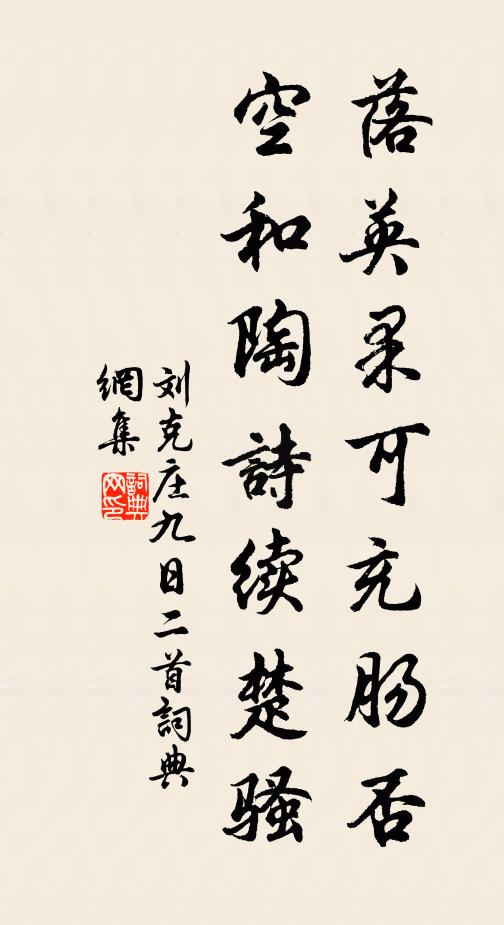 落英果可充肠否
空和陶詩续楚骚
刘克庄九日二首詞典
網集
詞典
网印